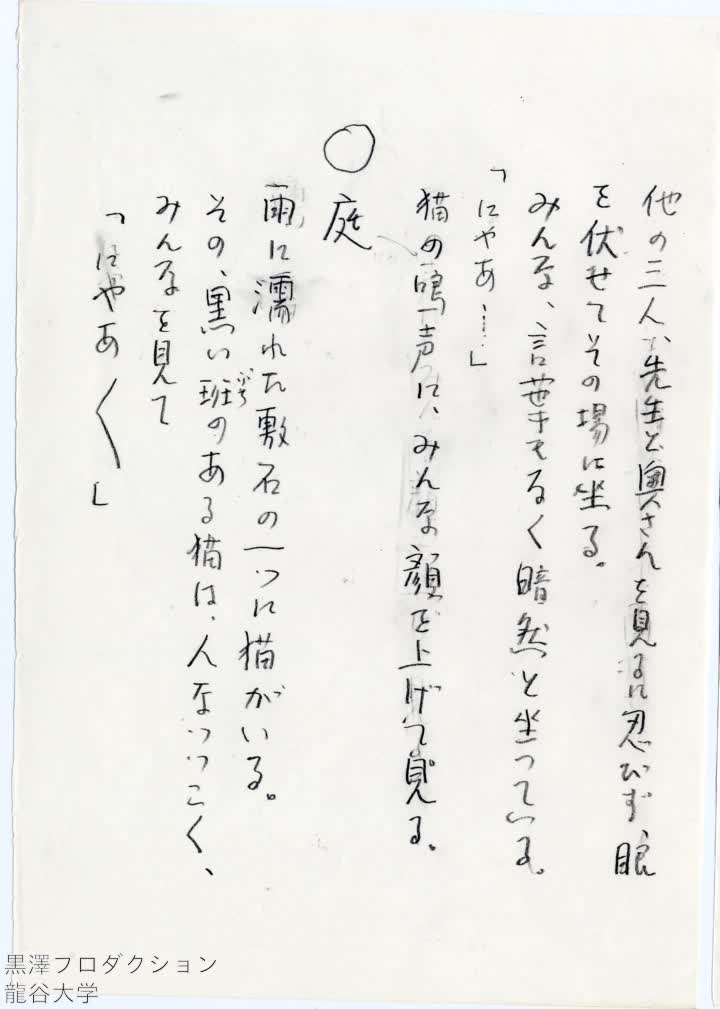 他の三人、先生と奥さんを見るに忍びず、眼
を伏せてその場に坐る。
みんな、言葉もなく暗然と坐っている。
「にゃあ……」
猫の鳴声に、みんな顔を上げて見る。
○庭
雨に濡れた敷石の一つに猫がいる。
その、黒い斑のある猫は、人なつっこく、
ぶち
みんなを見て
「にゃあ〱」
黒澤プロダクション
龍谷大学